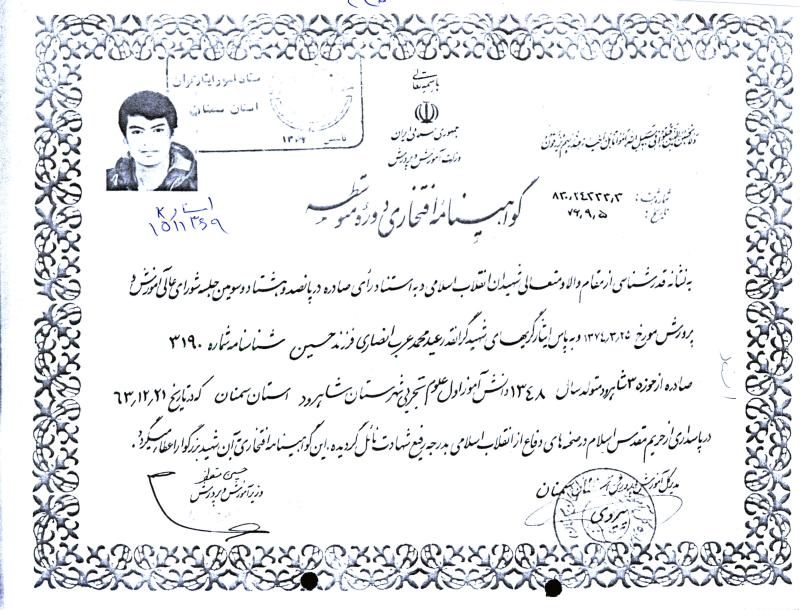 باسمه تعالی
جمهوری اسلامی ایران
وزارت آموزش و پرورش
ستاد امور ایثارگران
استان سمنان
تاسیس ۱۳۶۹
شماره ثبت: ۸۳۰۲۴۳۳۳٫۳
تاریخ: ۷۶٫۹٫۵
گواهینامه افتخاری دوره متوسطه
به نشانه قدرشناسی از مقام والا و متعالی شهیدان انقلاب اسلامی و به استناد رأی صادره در پانصد و هشتاد و سومین جلسه شورای عالی آموزش و
پرورش مورخ ۱۳۷۴٫۳٫۲۵ و به پاس ایثارگریهای شهید گرانقدر عید محمد عرب انصاری فرزند حسین شناسنامه شماره ۳۱۹۰
صادره از حوزه ۳ شاهرود متولد سال ۱۳۴۸ دانش آموز اول علوم تجربی شهرستان شاهرود استان سمنان که در تاریخ ۶۳٫۱۲٫۲۱
در پاسداری از حریم مقدس اسلام در صحنه های دفاع از انقلاب اسلامی به درجه رفیع شهادت نائل گردیده، این گواهینامه افتخاری به آن شهید بزرگوار اعطا میگردد.
مدیر کل آموزش و پرورش استان سمنان
پیروی
وزیر آموزش و پرورش